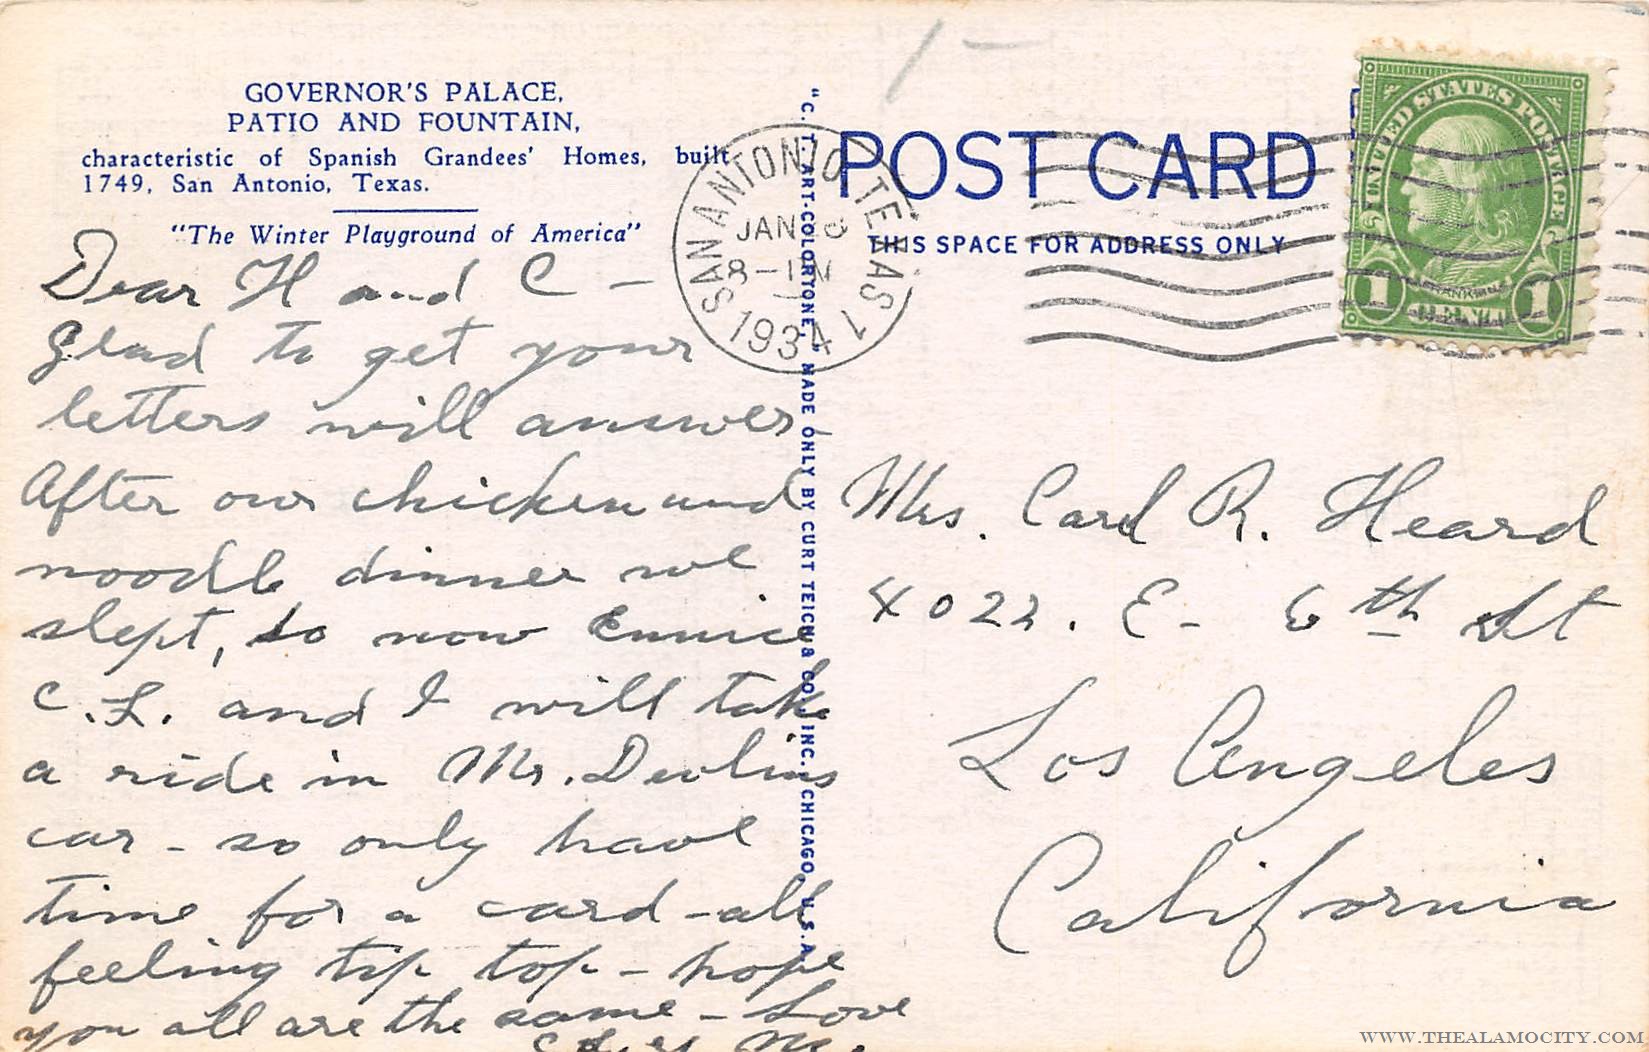 GOVERNOR'S PALACE,
PATIO AND FOUNTAIN,
characteristic of Spanish Grandees' Homes, built
1749, San Antonio, Texas.
"The Winter Playground of America"
Dear H and C –
Glad to get your
letters will answer –
After our chicken and
noodle dinner we
slept, so now Eunice
C.L. and I will take
a ride in Mr. Devlins
car – so only have
time for a card – all
feeling tip top – hope
you all are the same – Love
"C. T. ART-COLORTONE" MADE ONLY BY CURT TEICH & CO., INC., CHICAGO, U.S.A.
POST CARD
THIS SPACE FOR ADDRESS ONLY
SAN ANTONIO TEXAS 1
JAN
1934
UNITED STATES POSTAGE
FRANKLIN
1 CENT 1
Mrs. Carl R. Heard
4022. E – 6th St
Los Angeles
California
WWW.THEALAMOCITY.COM